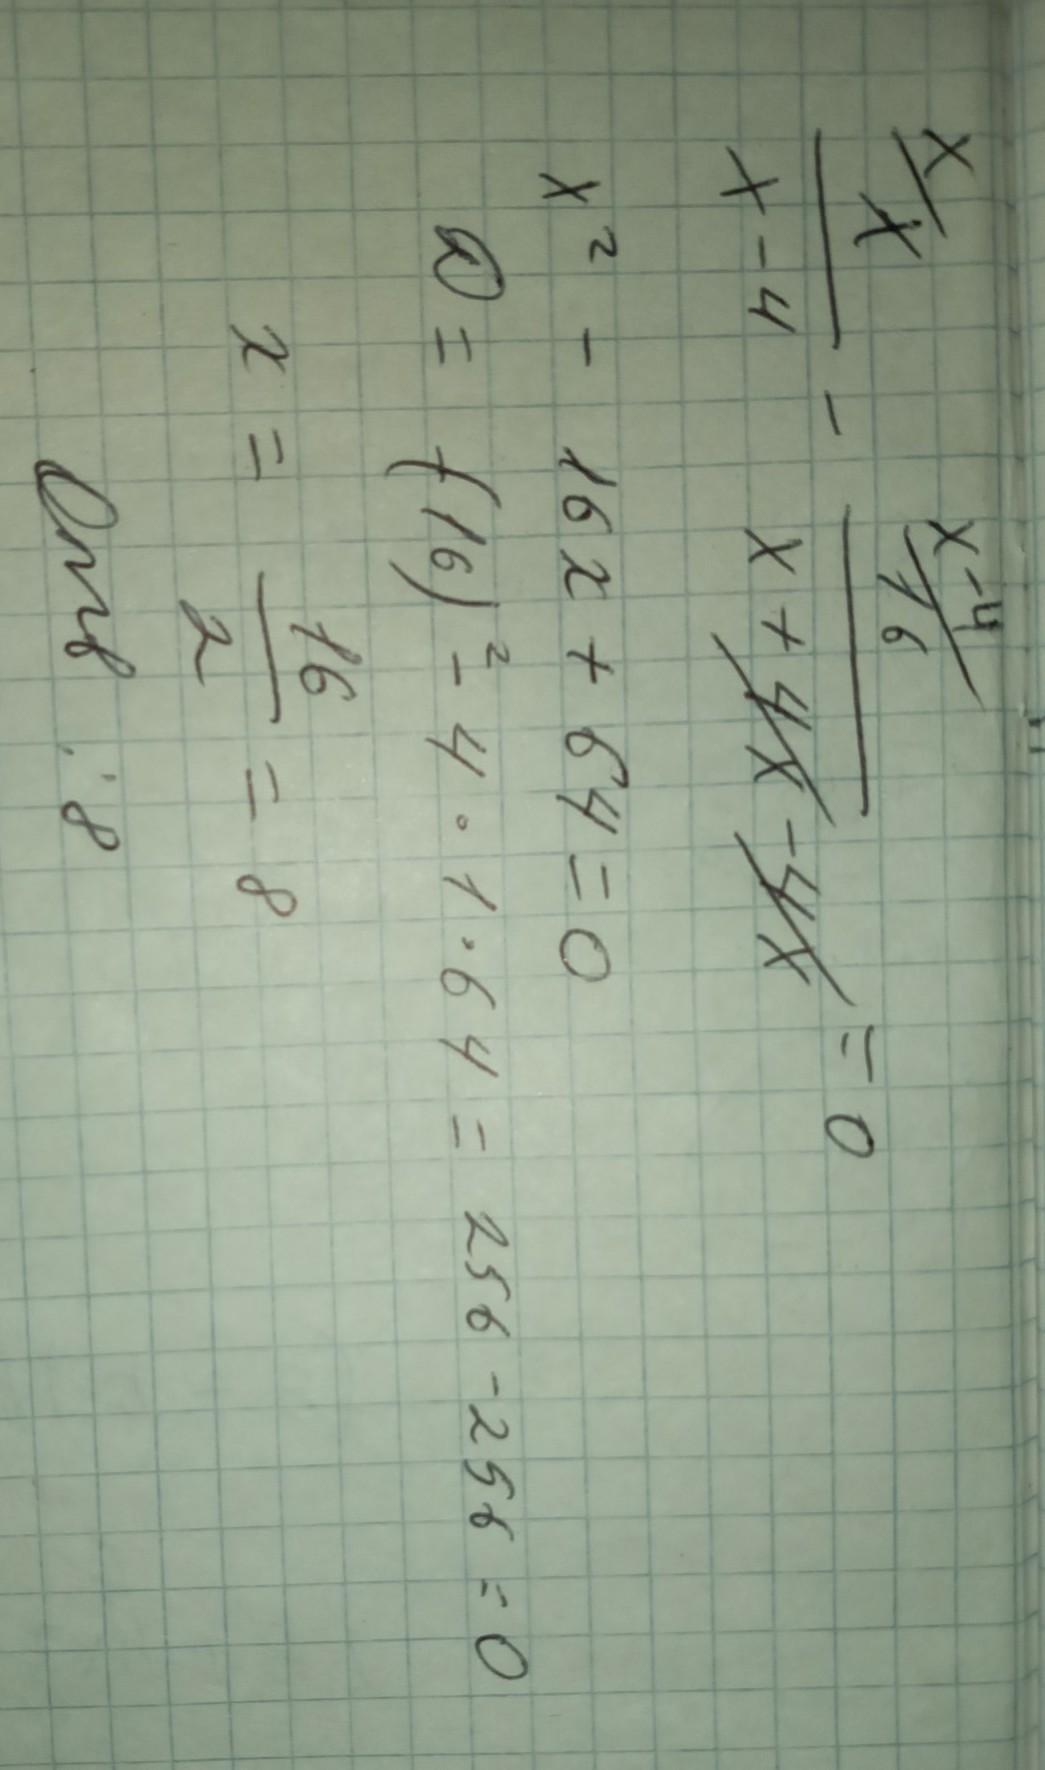 x/ x / x-4 - x-4/ 16 / x+4x-4x = 0
x² - 16x + 64 = 0
D = (16)² - 4 · 1 · 64 = 256 - 256 = 0
x = 16/2 = 8
Отв : 8